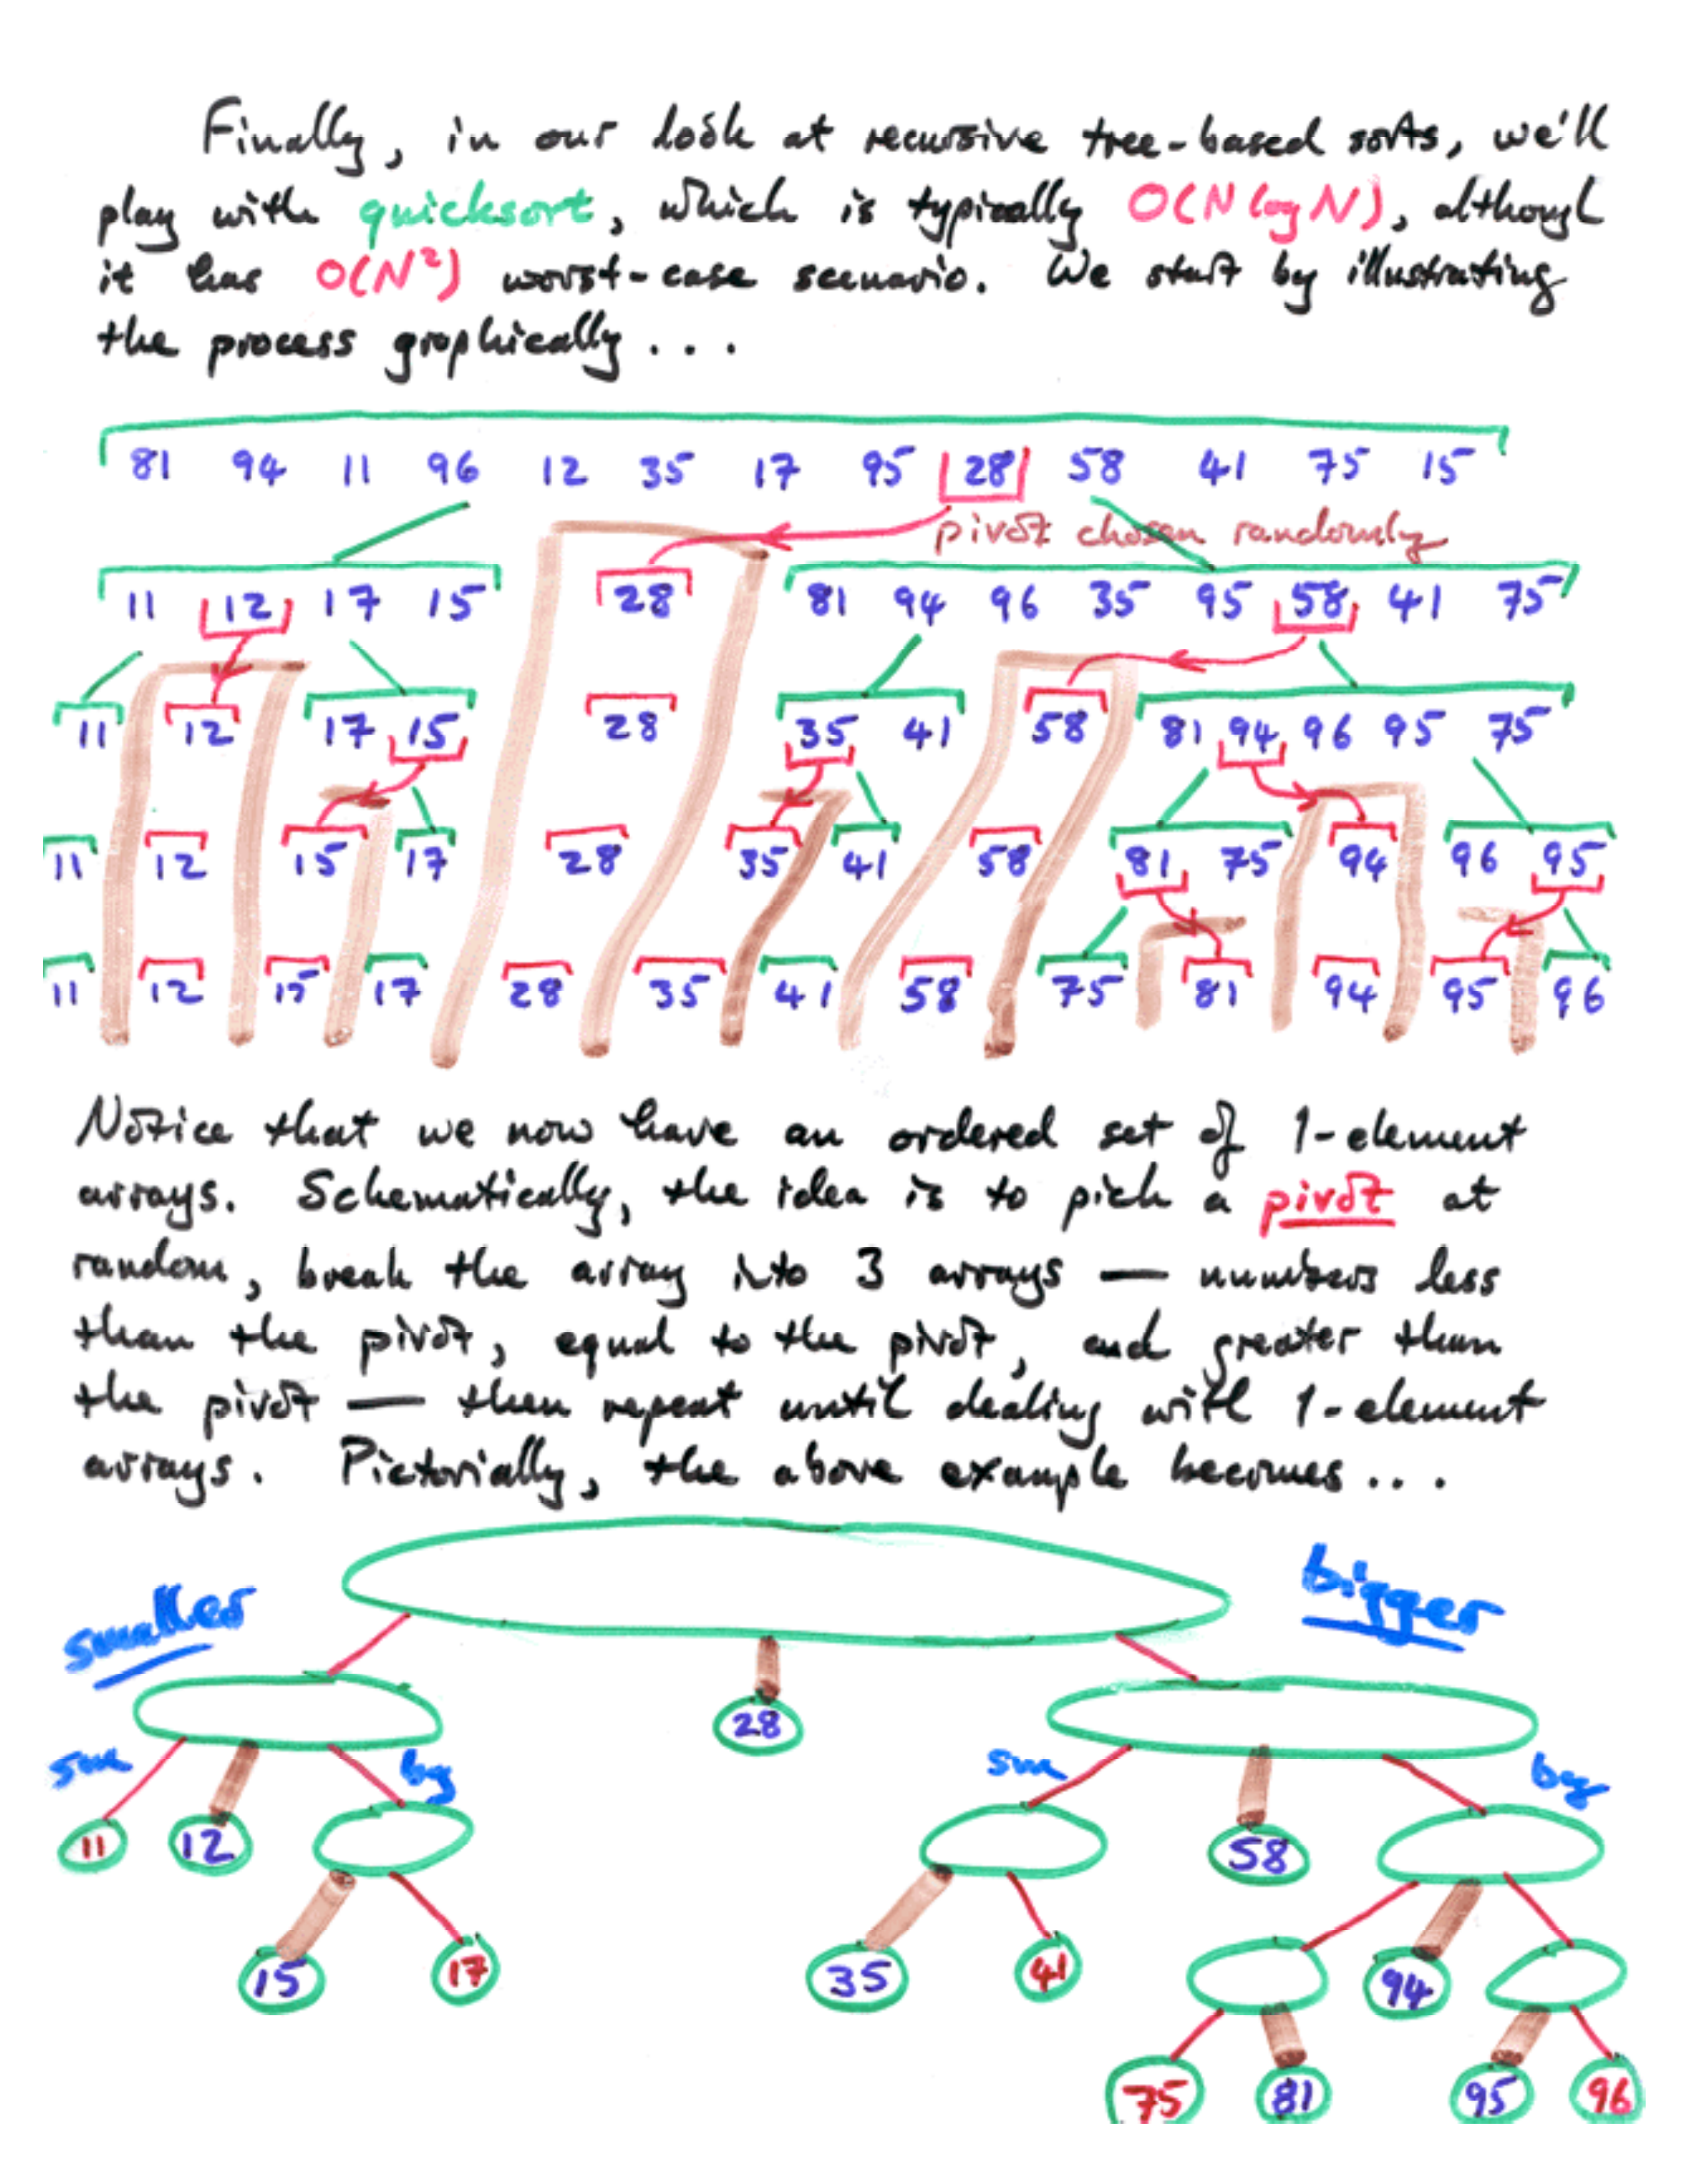 Finally, in our look at recursive tree-based sorts, we'll
play with quicksort, which is typically O(N log N), although
it has O(N²) worst-case scenario. We start by illustrating
the process graphically...
81 94 11 96 12 35 17 95 28 58 41 75 15
pivot chosen randomly
11 12 17 15 28 81 94 96 35 95 58 41 75
11 12 17 15 28 35 41 58 81 94 96 95 75
11 12 15 17 28 35 41 58 81 75 94 96 95
11 12 15 17 28 35 41 58 75 81 94 95 96
Notice that we now have an ordered set of 1-element
arrays. Schematically, the idea is to pick a pivot at
random, break the array into 3 arrays — numbers less
than the pivot, equal to the pivot, and greater than
the pivot — then repeat until dealing with 1-element
arrays. Pictorially, the above example becomes...
smaller bigger
28
sm big sm big
11 12 58
15 17 35 41 94
75 81 95 96